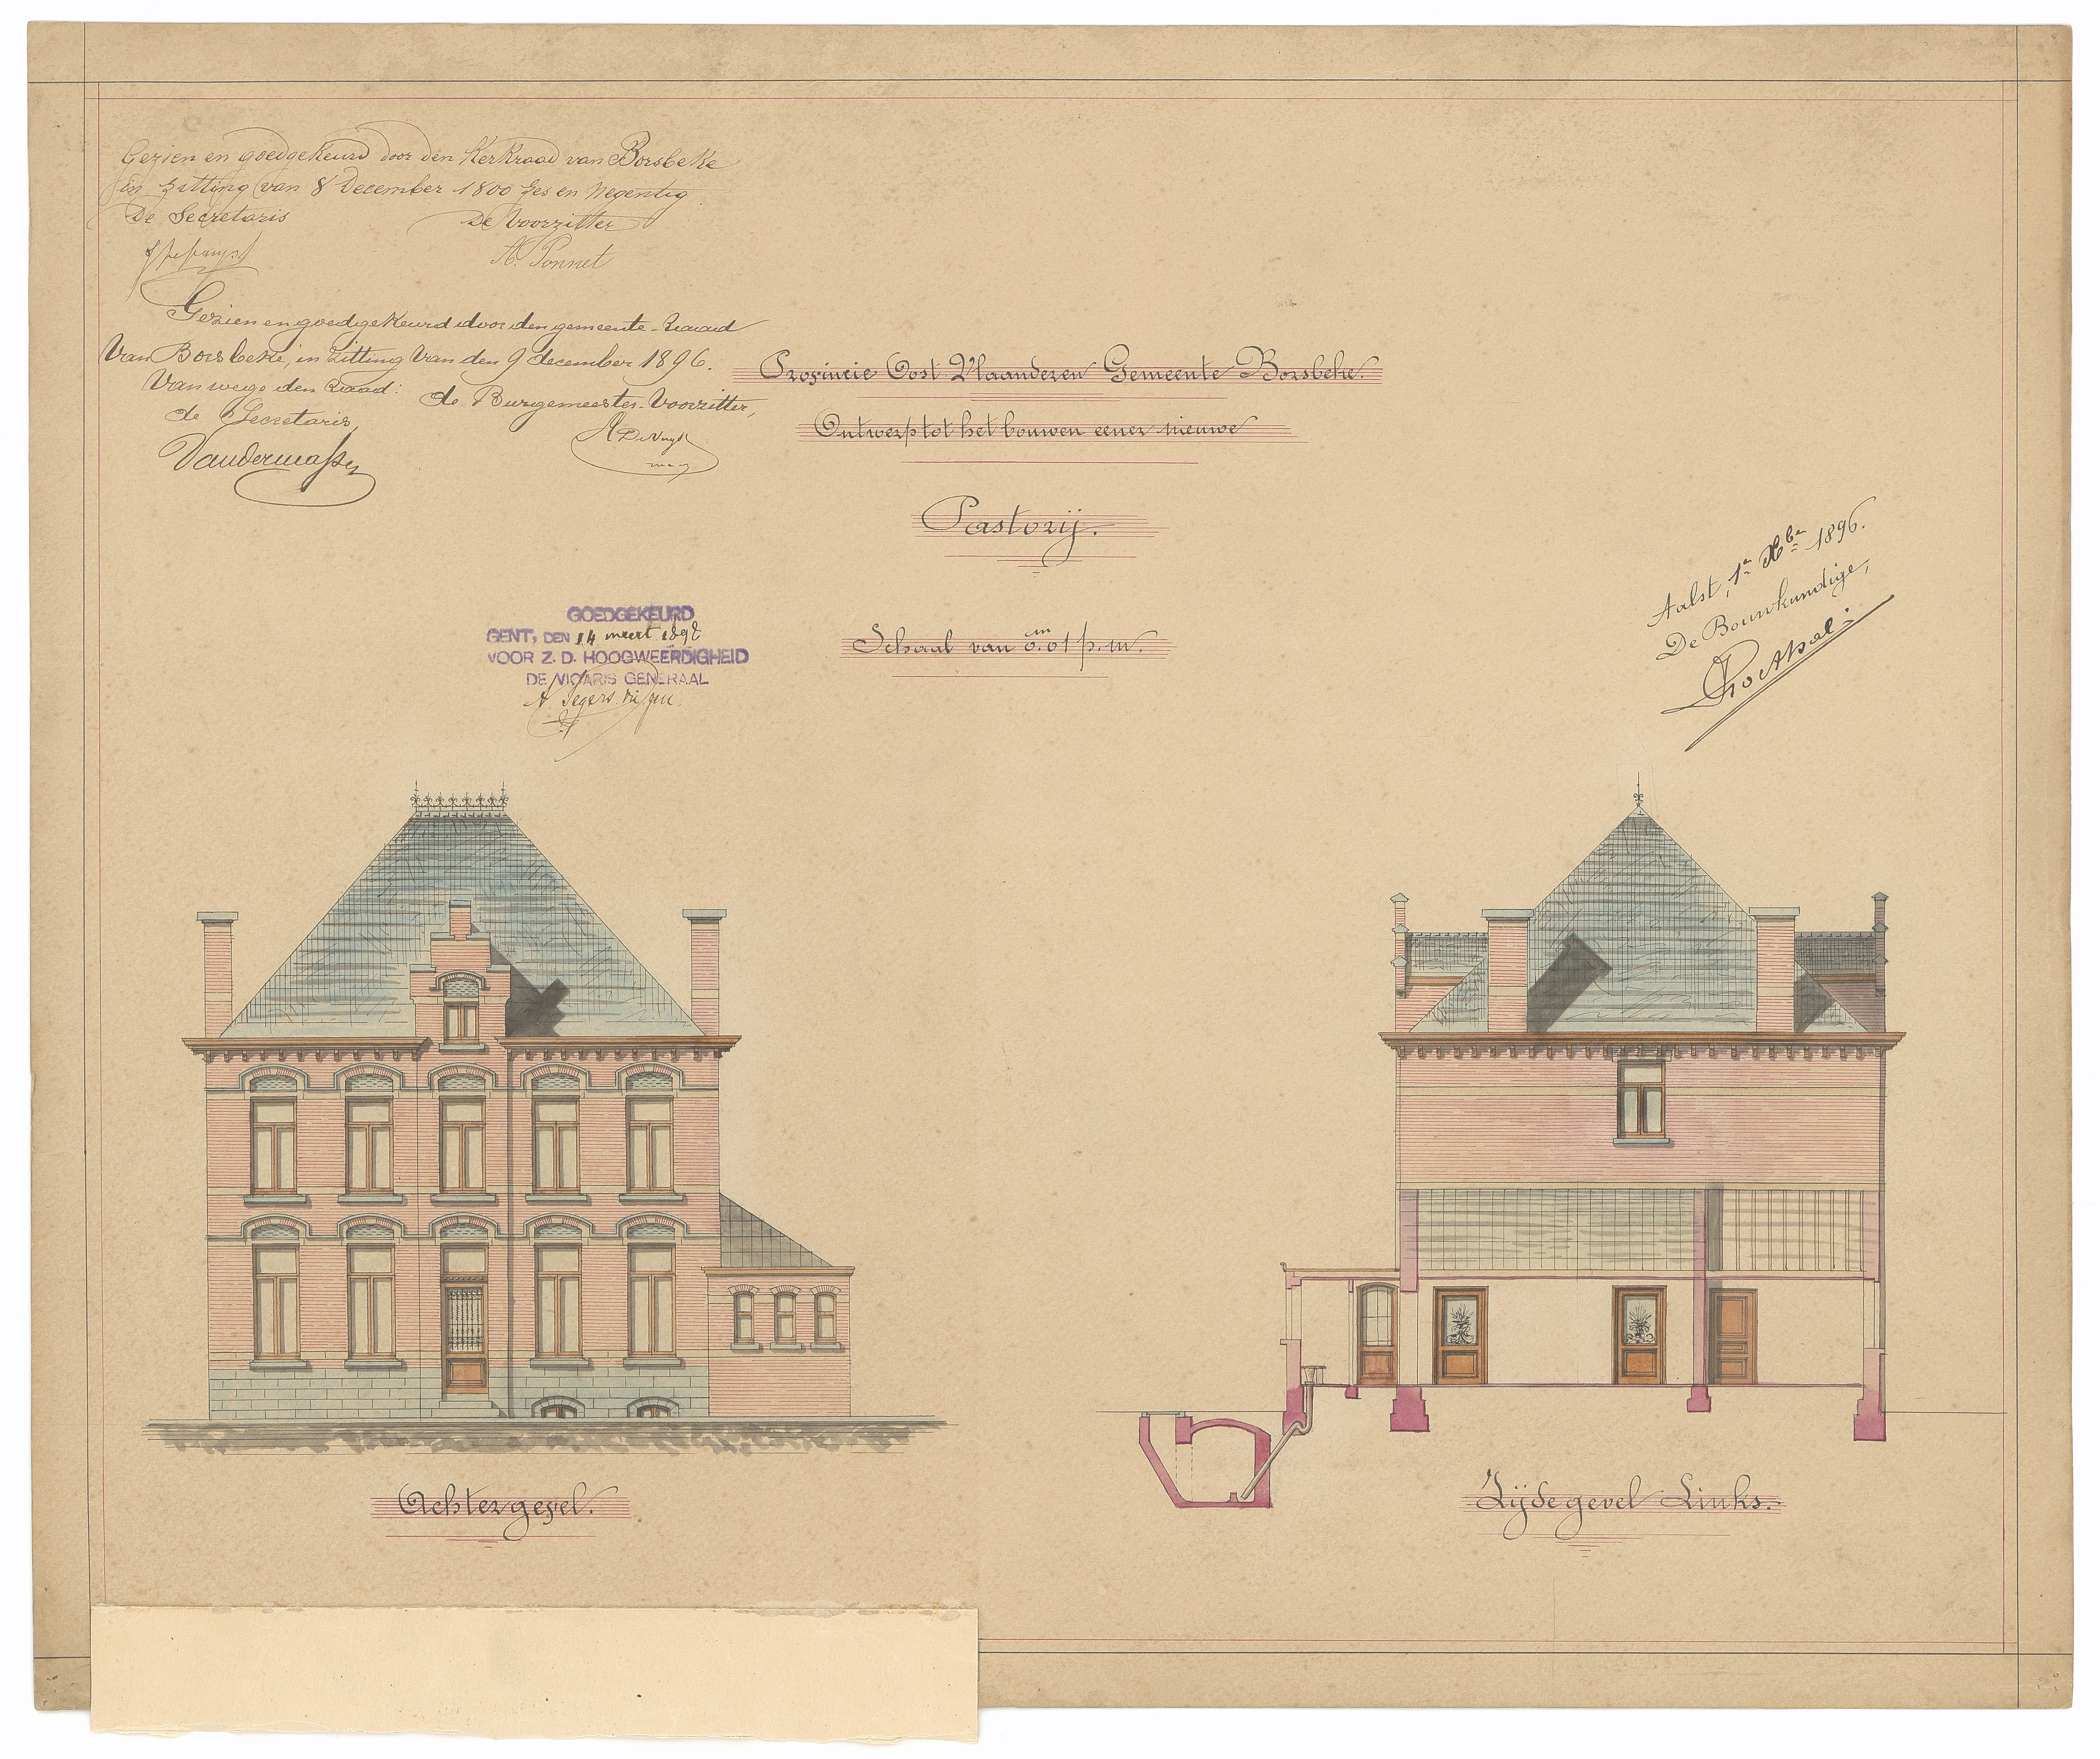 Gezien en goedgekeurd door den Kerkraad van Borsbeke
in zitting van 8 December 1800 zes en negentig
De Secretaris De Voorzitter
A. Ponnet
Gezien en goedgekeurd door den gemeente-Raad
Van Borsbeke, in zitting Van den 9 december 1896.
Van wege den Raad: de Burgemeester-Voorzitter,
de Secretaris,
Provincie Oost Vlaanderen Gemeente Borsbeke.
Ontwerp tot het bouwen eener nieuwe
Pastorij.
Schaal van 0.m01 p.m.
GOEDGEKEURD
GENT, DEN 14 meert 1898
VOOR Z. D. HOOGWEERDIGHEID
DE VICARIS GENERAAL
Aalst, 1e Xber 1896.
De Bouwkundige,
Achtergevel.
Zijdegevel Links.